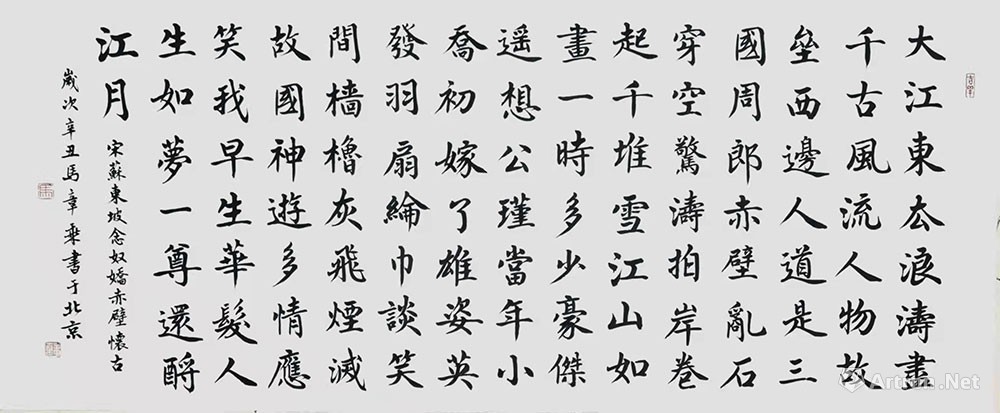 大江東去浪濤盡
千古風流人物故
壘西邊人道是三
國周郎赤壁亂石
穿空驚濤拍岸卷
起千堆雪江山如
畫一時多少豪傑
遥想公瑾當年小
喬初嫁了雄姿英
發羽扇綸巾談笑
間檣櫓灰飛煙滅
故國神遊多情應
笑我早生華髮人
生如夢一尊還酹
江月
宋蘇東坡念奴嬌赤壁懷古
歲次辛丑馬章乘書于北京
Artron.Net